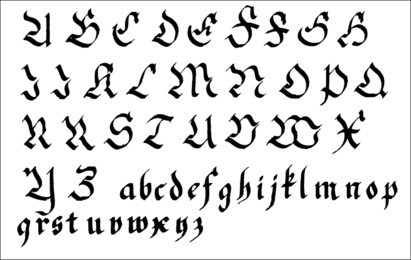 A B C D E F F G H
I J K L M N O P Q
R R S T U V W X
Y Z abcdefghijklmnop
qrstuvwxyz